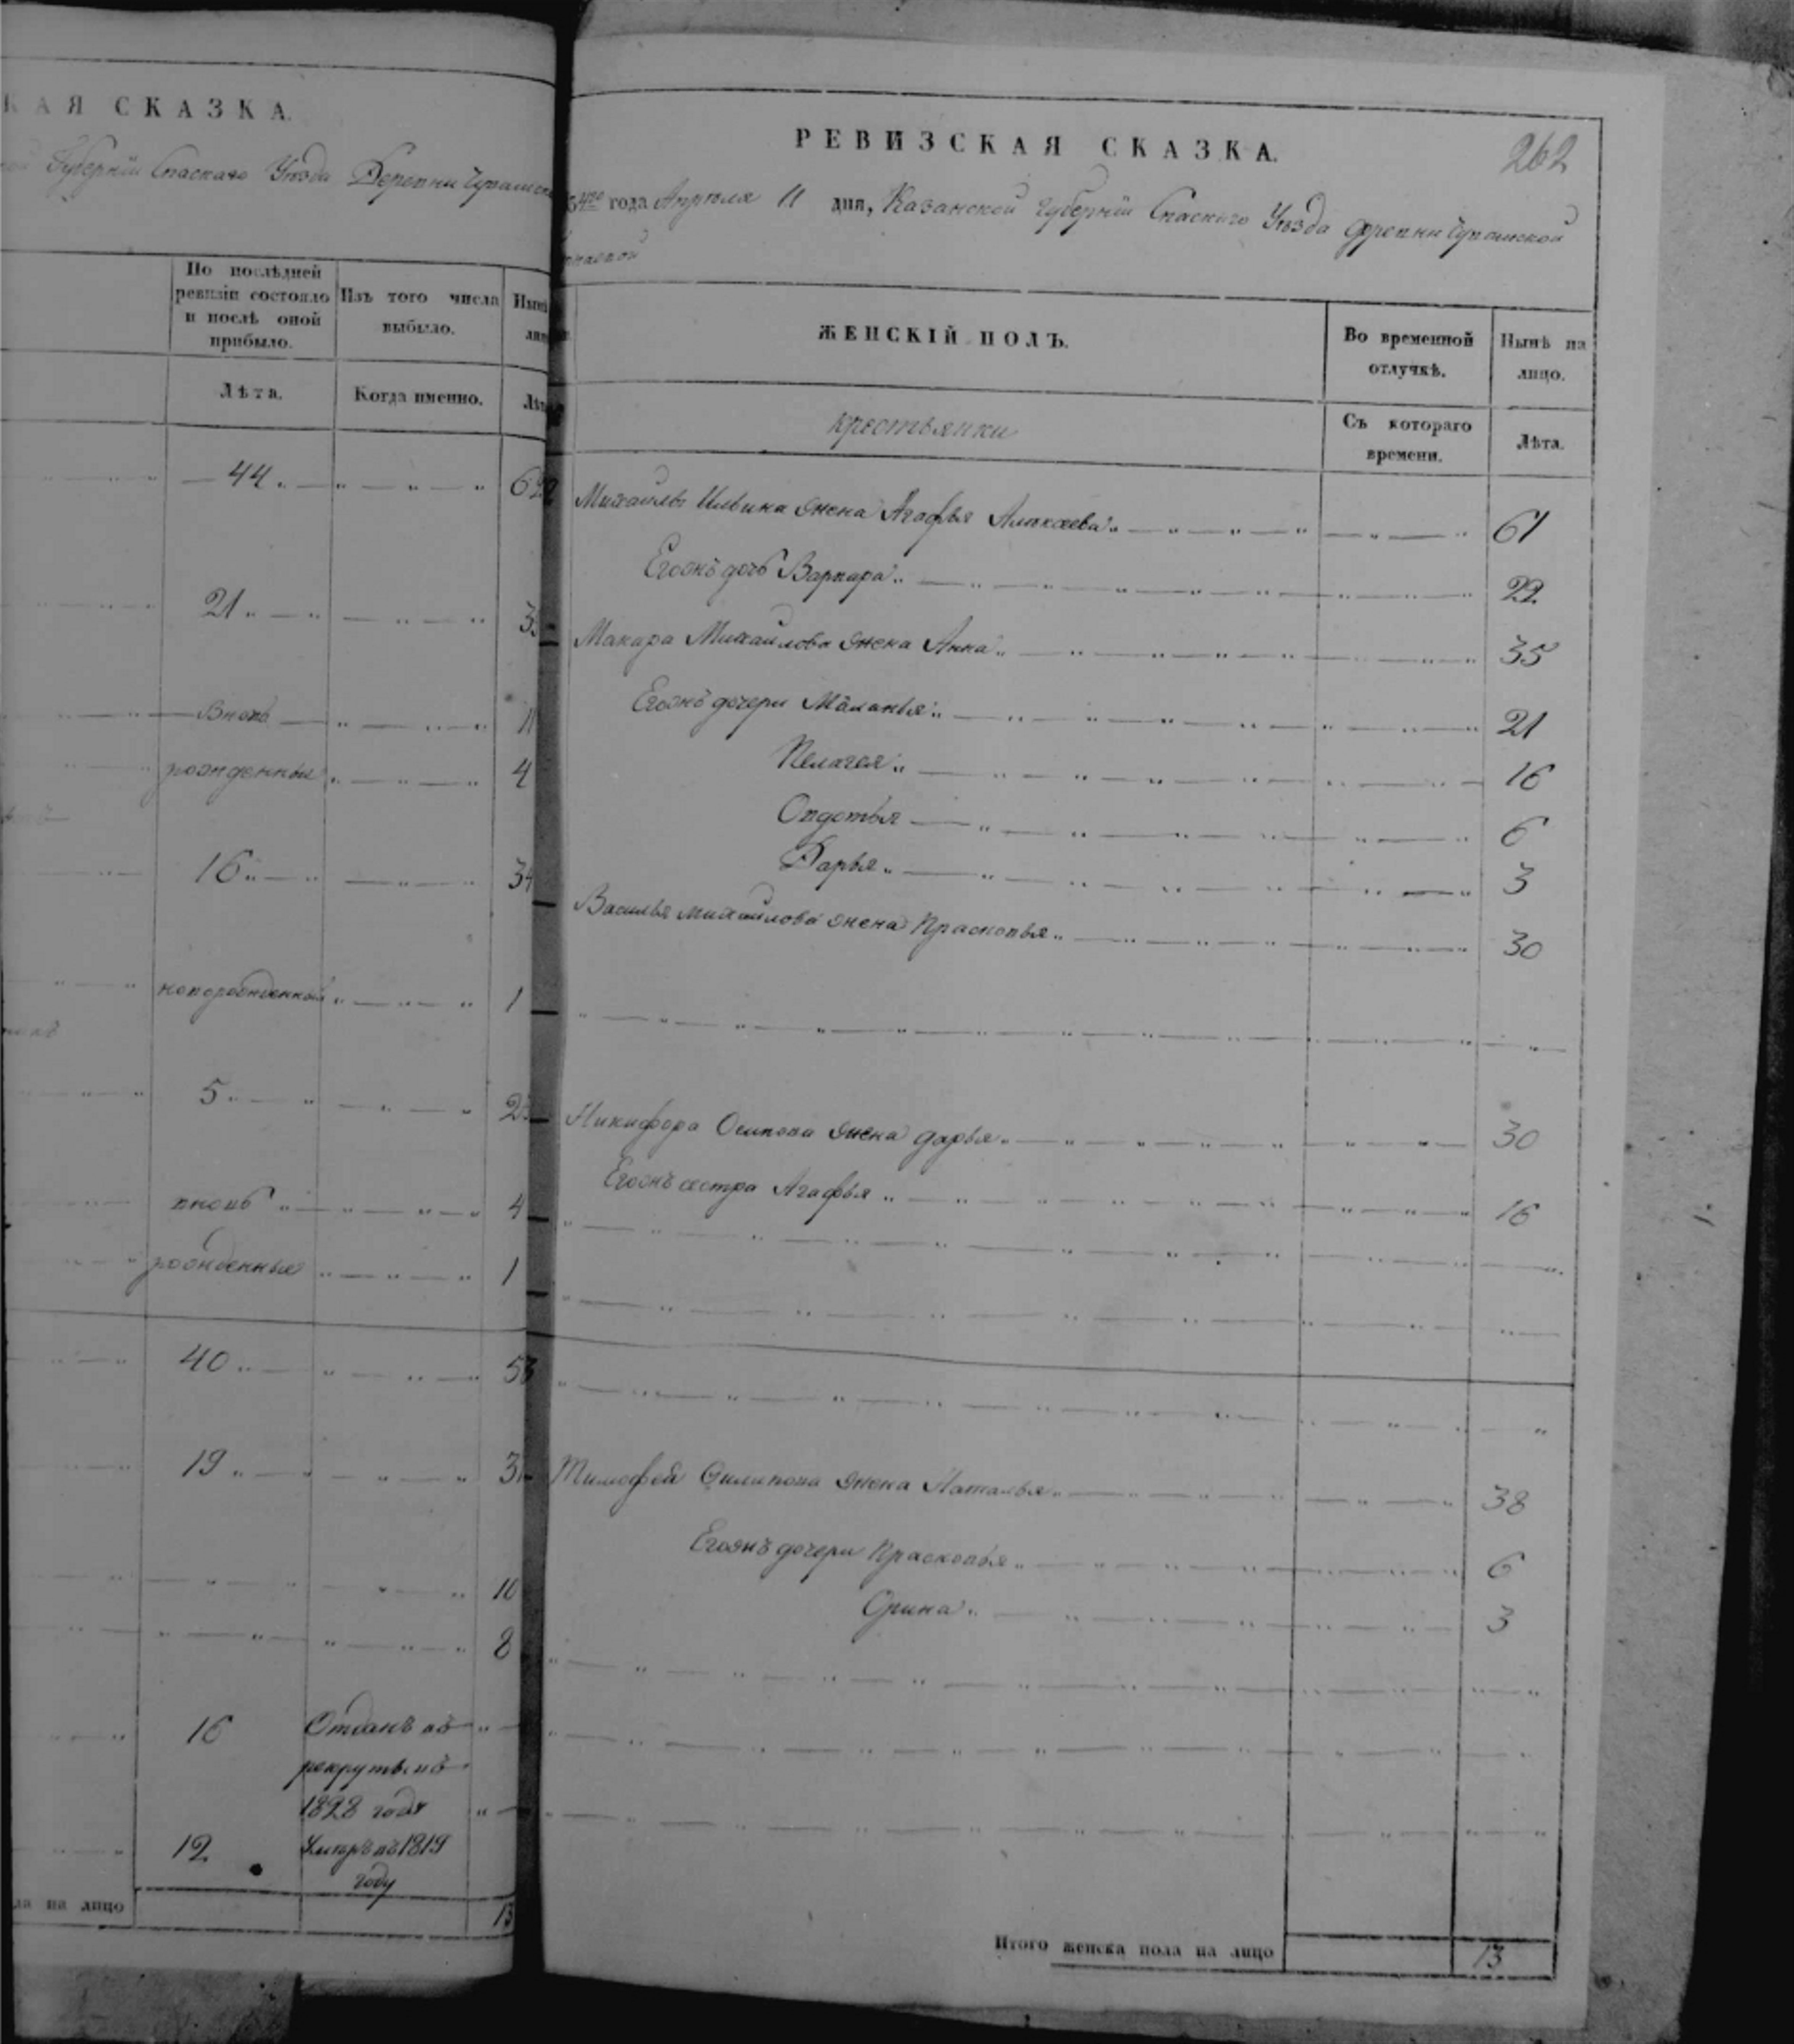 КАЯ СКАЗКА.
Губернiи Спаскаго Уѣзда Деревни Чувашско
По послѣдней ревизiи состояло и послѣ оной прибыло.
Изъ того числа выбыло.
Лѣта.
Когда именно.
44
21
Вновь
11
рожденныя
4
16
34
новорожденной
1
5
вновь
4
рожденныя
1
40
53
19
10
8
16 Отданъ въ
рекруты въ
1828 годя
12 Умеръ въ 1819
году
ла на лицо
13
РЕВИЗСКАЯ СКАЗКА.
262
года Апрѣля 11 дня, Казанской Губернiи Спаскаго Уѣзда деревни Чувашской
ЖЕНСКIЙ ПОЛЪ.
Во временной отлучкѣ.
Нынѣ на лицо.
крестьянки
Съ котораго времени.
Лѣта.
Михаилы Ильина жена Агафья Алексеева 61
Егожъ дочь Варвара 22
Макара Михаилова жена Анна 35
Егожъ дочери Маланья 21
Пелагея 16
Овдотья 6
Дарья 3
Василья михаилова жена Прасковья 30
Никифора Осипова жена дарья 30
Егожъ сестра Агафья 16
Тимофея Филипова жена Наталья 38
Егожъ дочери Прасковья 6
Орина 3
Итого женска пола на лицо 13